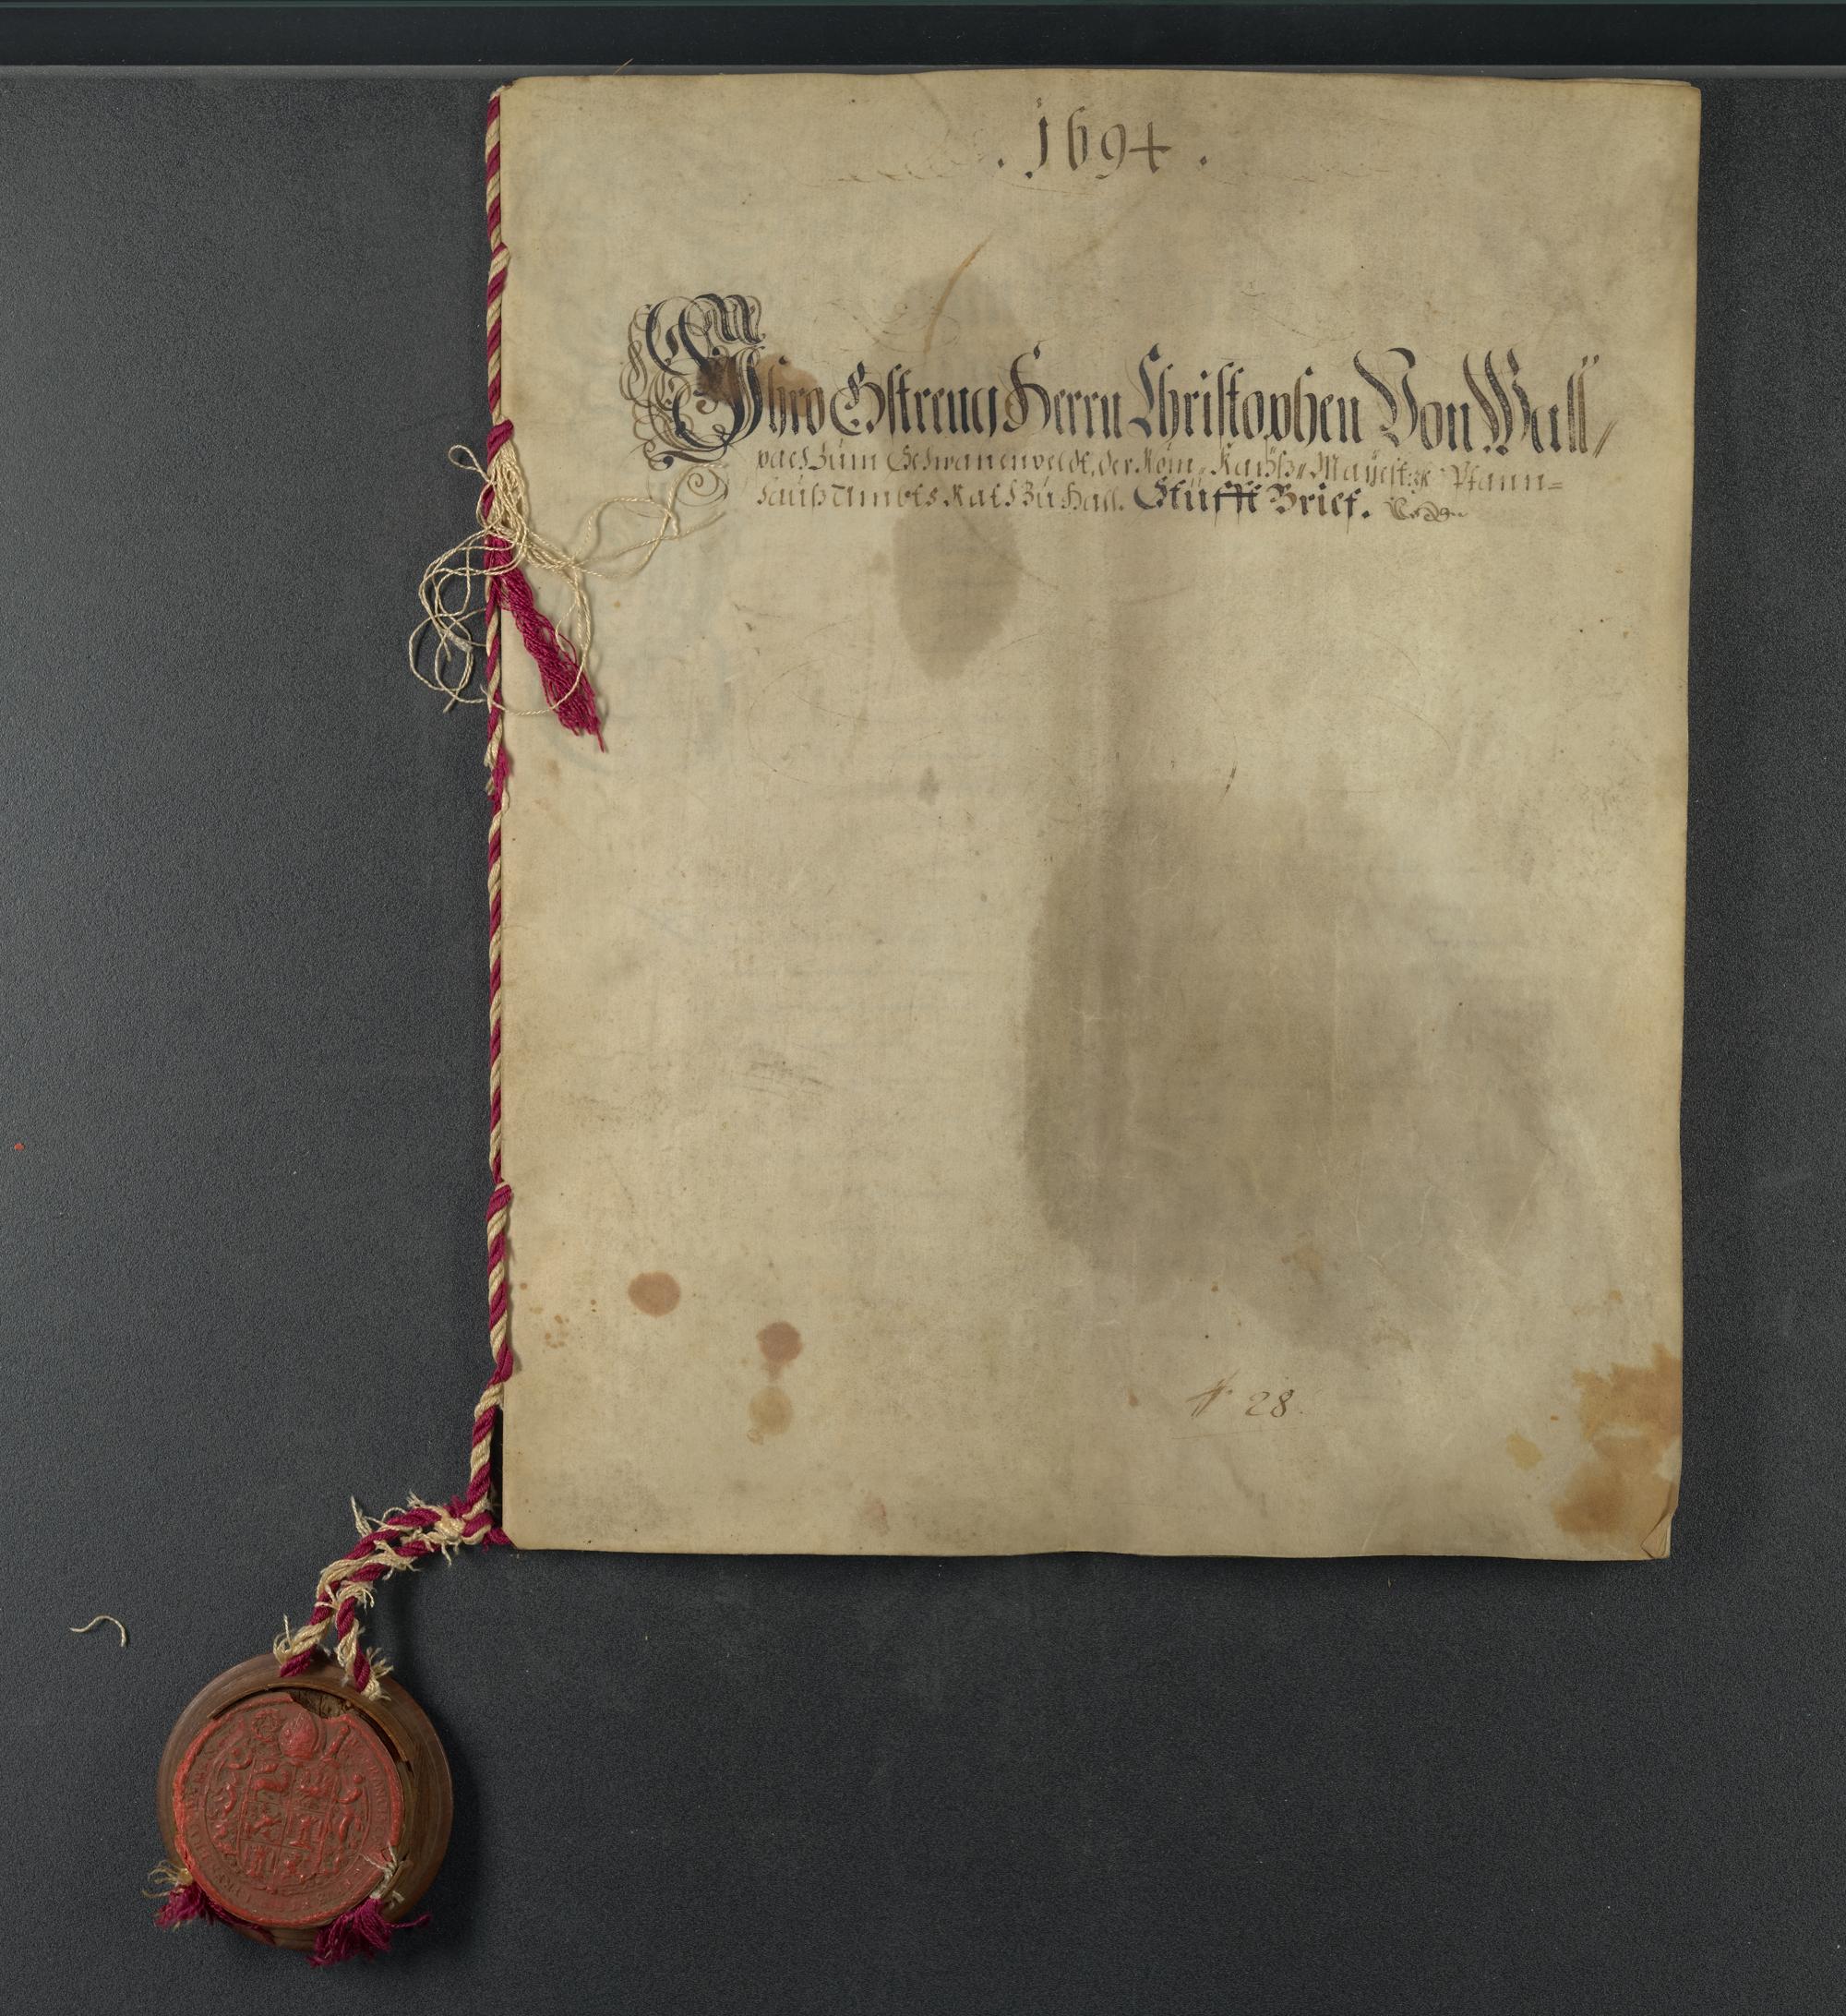 . 1694 .
Ihro Gstreng Herrn Christophen Von Wall//
pach Zum Schwanenveldt, der Röm. Kaÿß. Maÿest: Pfann=
hauß Ambts Rats Zu Hall. Stüfft Brief.
N 28.